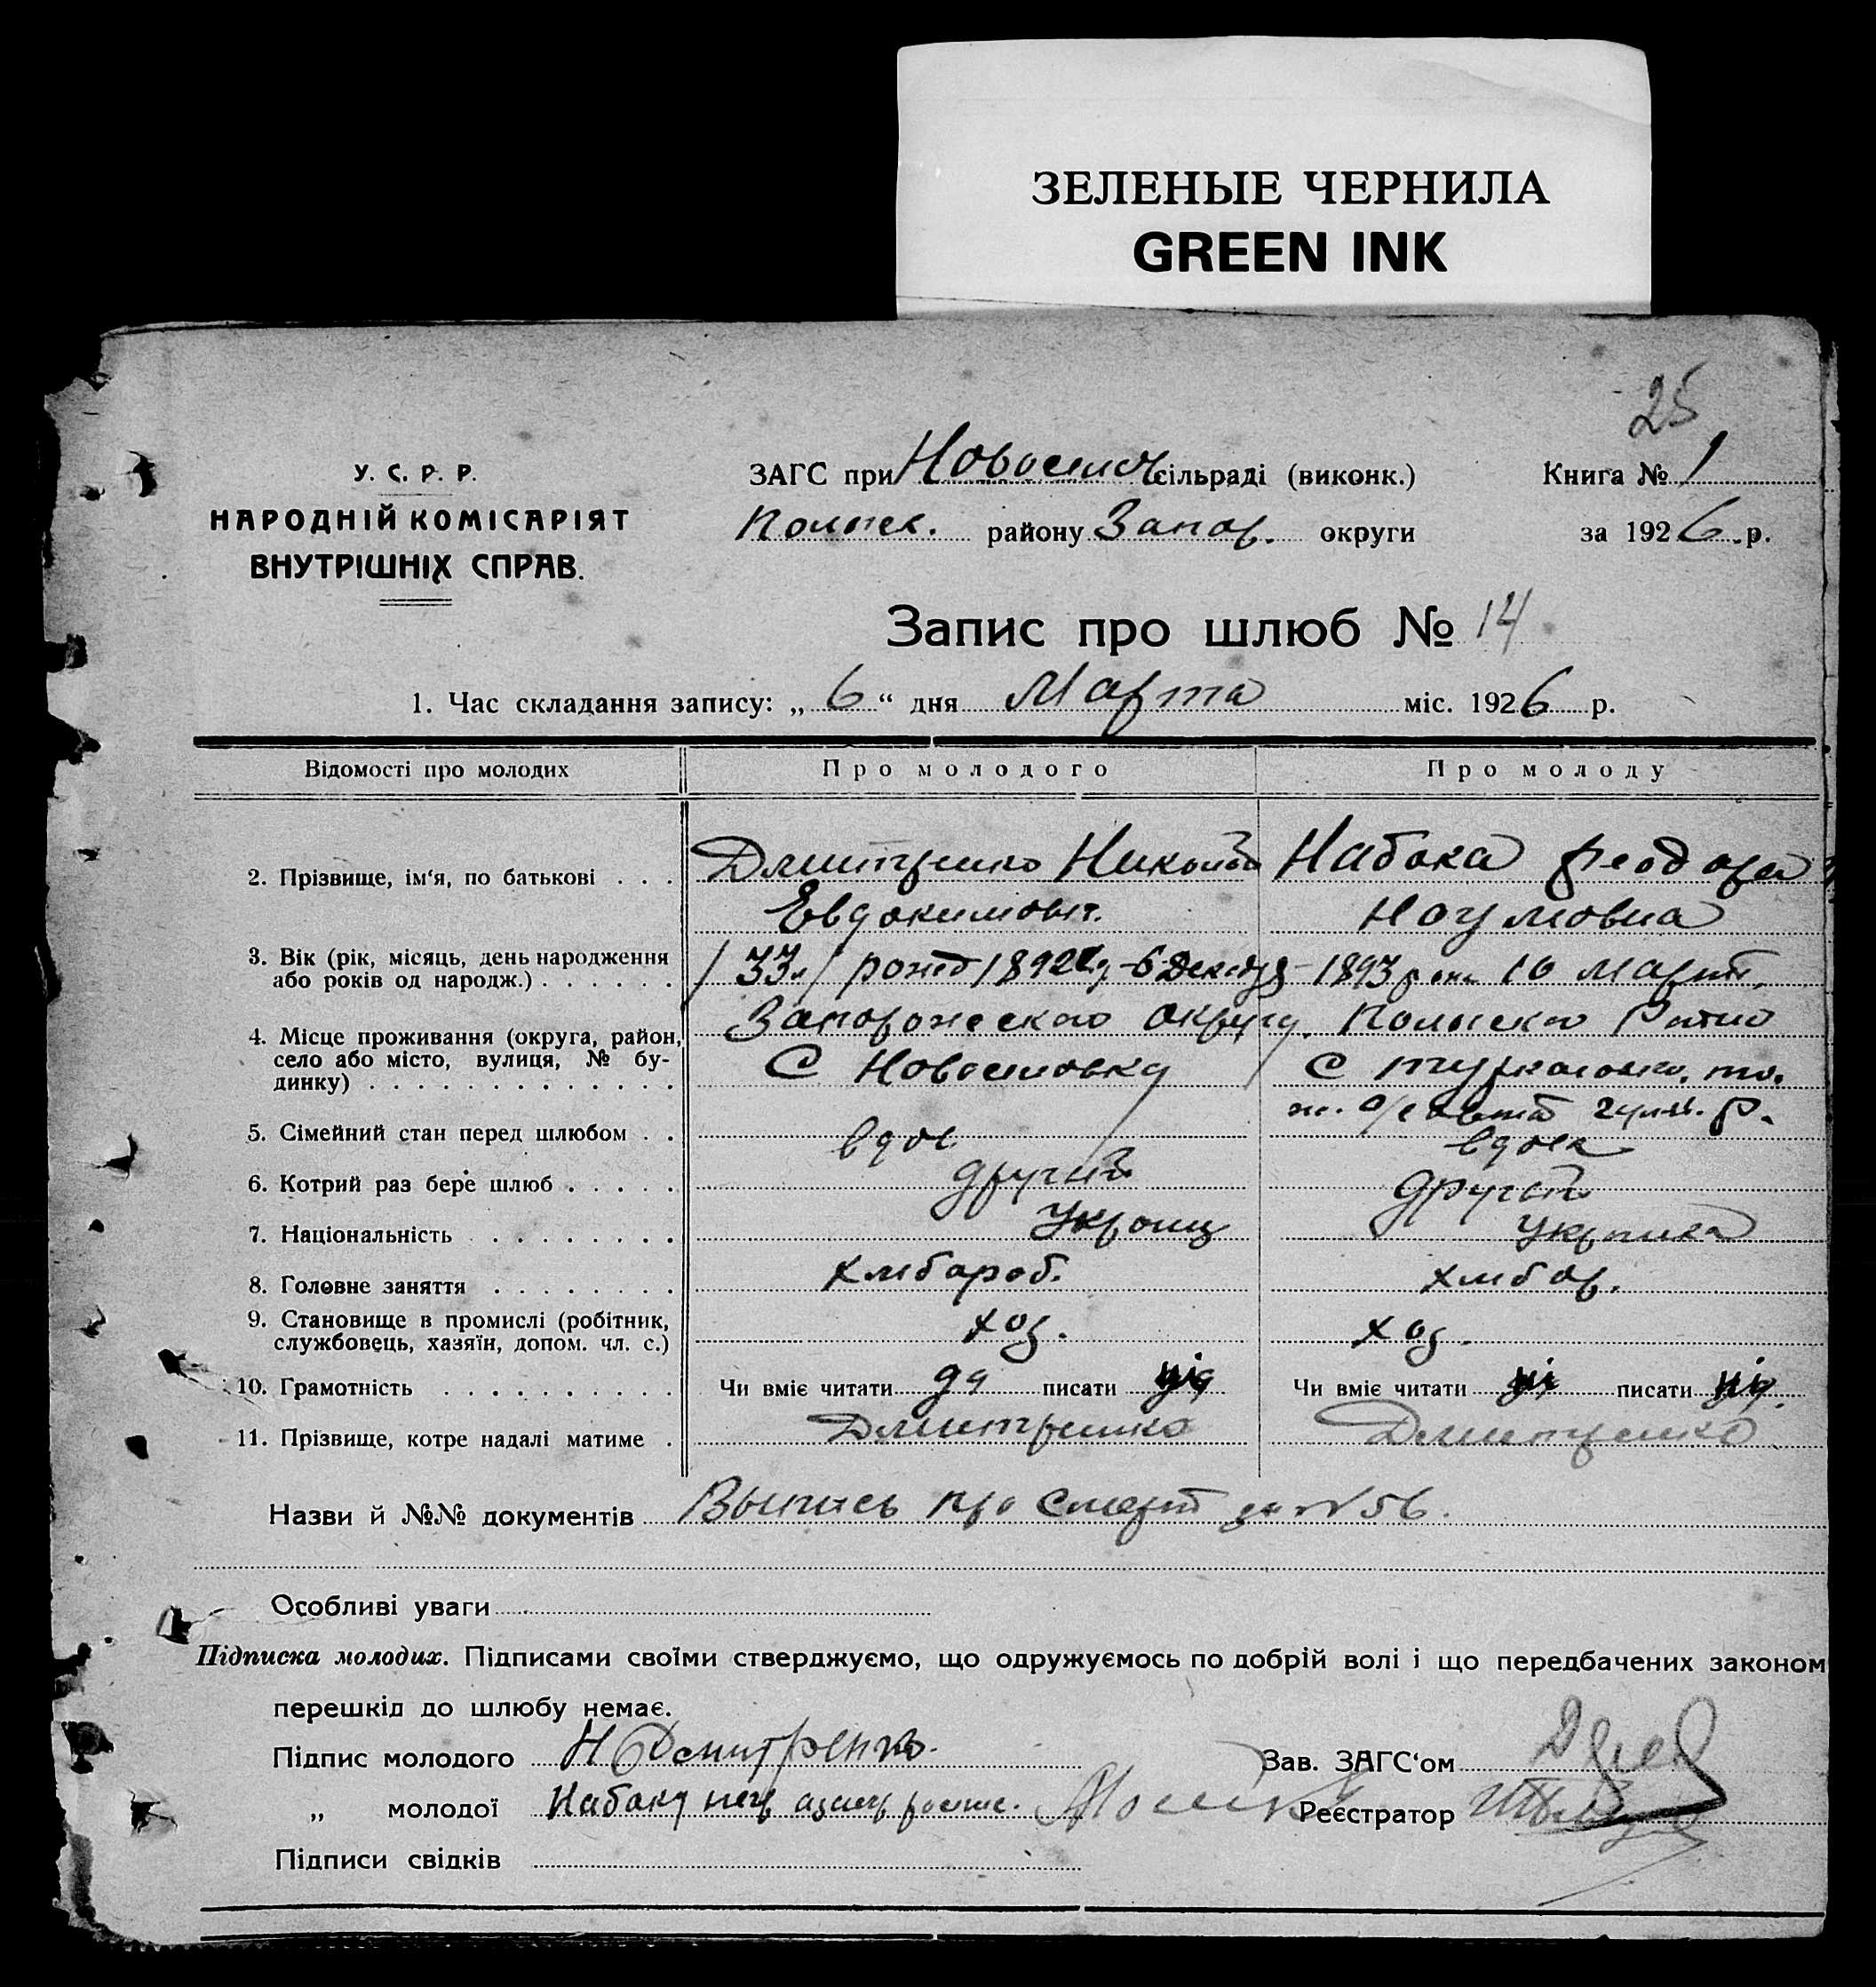 ЗЕЛЕНЫЕ ЧЕРНИЛА
GREEN INK
25
У. С. Р. Р.
НАРОДНІЙ КОМІСАРІЯТ
ВНУТРІШНІХ СПРАВ.
ЗАГС при сільраді (виконк.) Книга № 1
району Запор. округи за 1926 р.
Запис про шлюб № 14
1. Час складання запису: „ 6 “ дня Марта міс. 1926 р.
Відомості про молодих Про молодого Про молоду
2. Прізвище, ім‘я, по батькові . . . Дмитренко Николай Набока Феодора
Евдокимов. Наумовна
3. Вік (рік, місяць, день народження
або років од народж.) . . . . . . /33л/ рожд 1892 6 Декабр 1893 рока 10 Март
4. Місце проживання (округа, район, Запорожского Округу
село або місто, вулиця, № бу- С Новоселовку С
динку) . . . . . . . . . . . . . .
5. Сімейний стан перед шлюбом . . вдов вдова
6. Котрий раз бере шлюб . . . . . другий другий
7. Національність . . . . . . . . Украинц Украинка
8. Головне заняття . . . . . . . . хлебароб. хлебор.
9. Становище в промислі (робітник,
службовець, хазяїн, допом. чл. с.) хоз. хоз.
10. Грамотність . . . . . . . . . . Чи вміє читати да писати Чи вміє читати ні писати ні
11. Прізвище, котре надалі матиме . Дмитренко Дмитренко
Назви й №№ документів Выпись про смерт за № 56.
Особливі уваги
Підписка молодих. Підписами своїми стверджуємо, що одружуємось по добрій волі і що передбачених законом
перешкід до шлюбу немає.
Підпис молодого Н Дмитренко. Зав. ЗАГС‘ом
„ молодої Набака Реєстратор
Підписи свідків